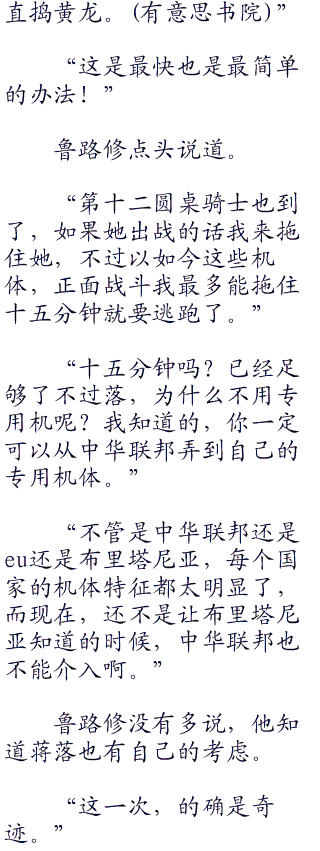 直捣黄龙。(有意思书院)”
“这是最快也是最简单
的办法！”
鲁路修点头说道。
“第十二圆桌骑士也到
了，如果她出战的话我来拖
住她，不过以如今这些机
体，正面战斗我最多能拖住
十五分钟就要逃跑了。”
“十五分钟吗？已经足
够了不过落，为什么不用专
用机呢？我知道的，你一定
可以从中华联邦弄到自己的
专用机体。”
“不管是中华联邦还是
eu还是布里塔尼亚，每个国
家的机体特征都太明显了，
而现在，还不是让布里塔尼
亚知道的时候，中华联邦也
不能介入啊。”
鲁路修没有多说，他知
道蒋落也有自己的考虑。
“这一次，的确是奇
迹。”